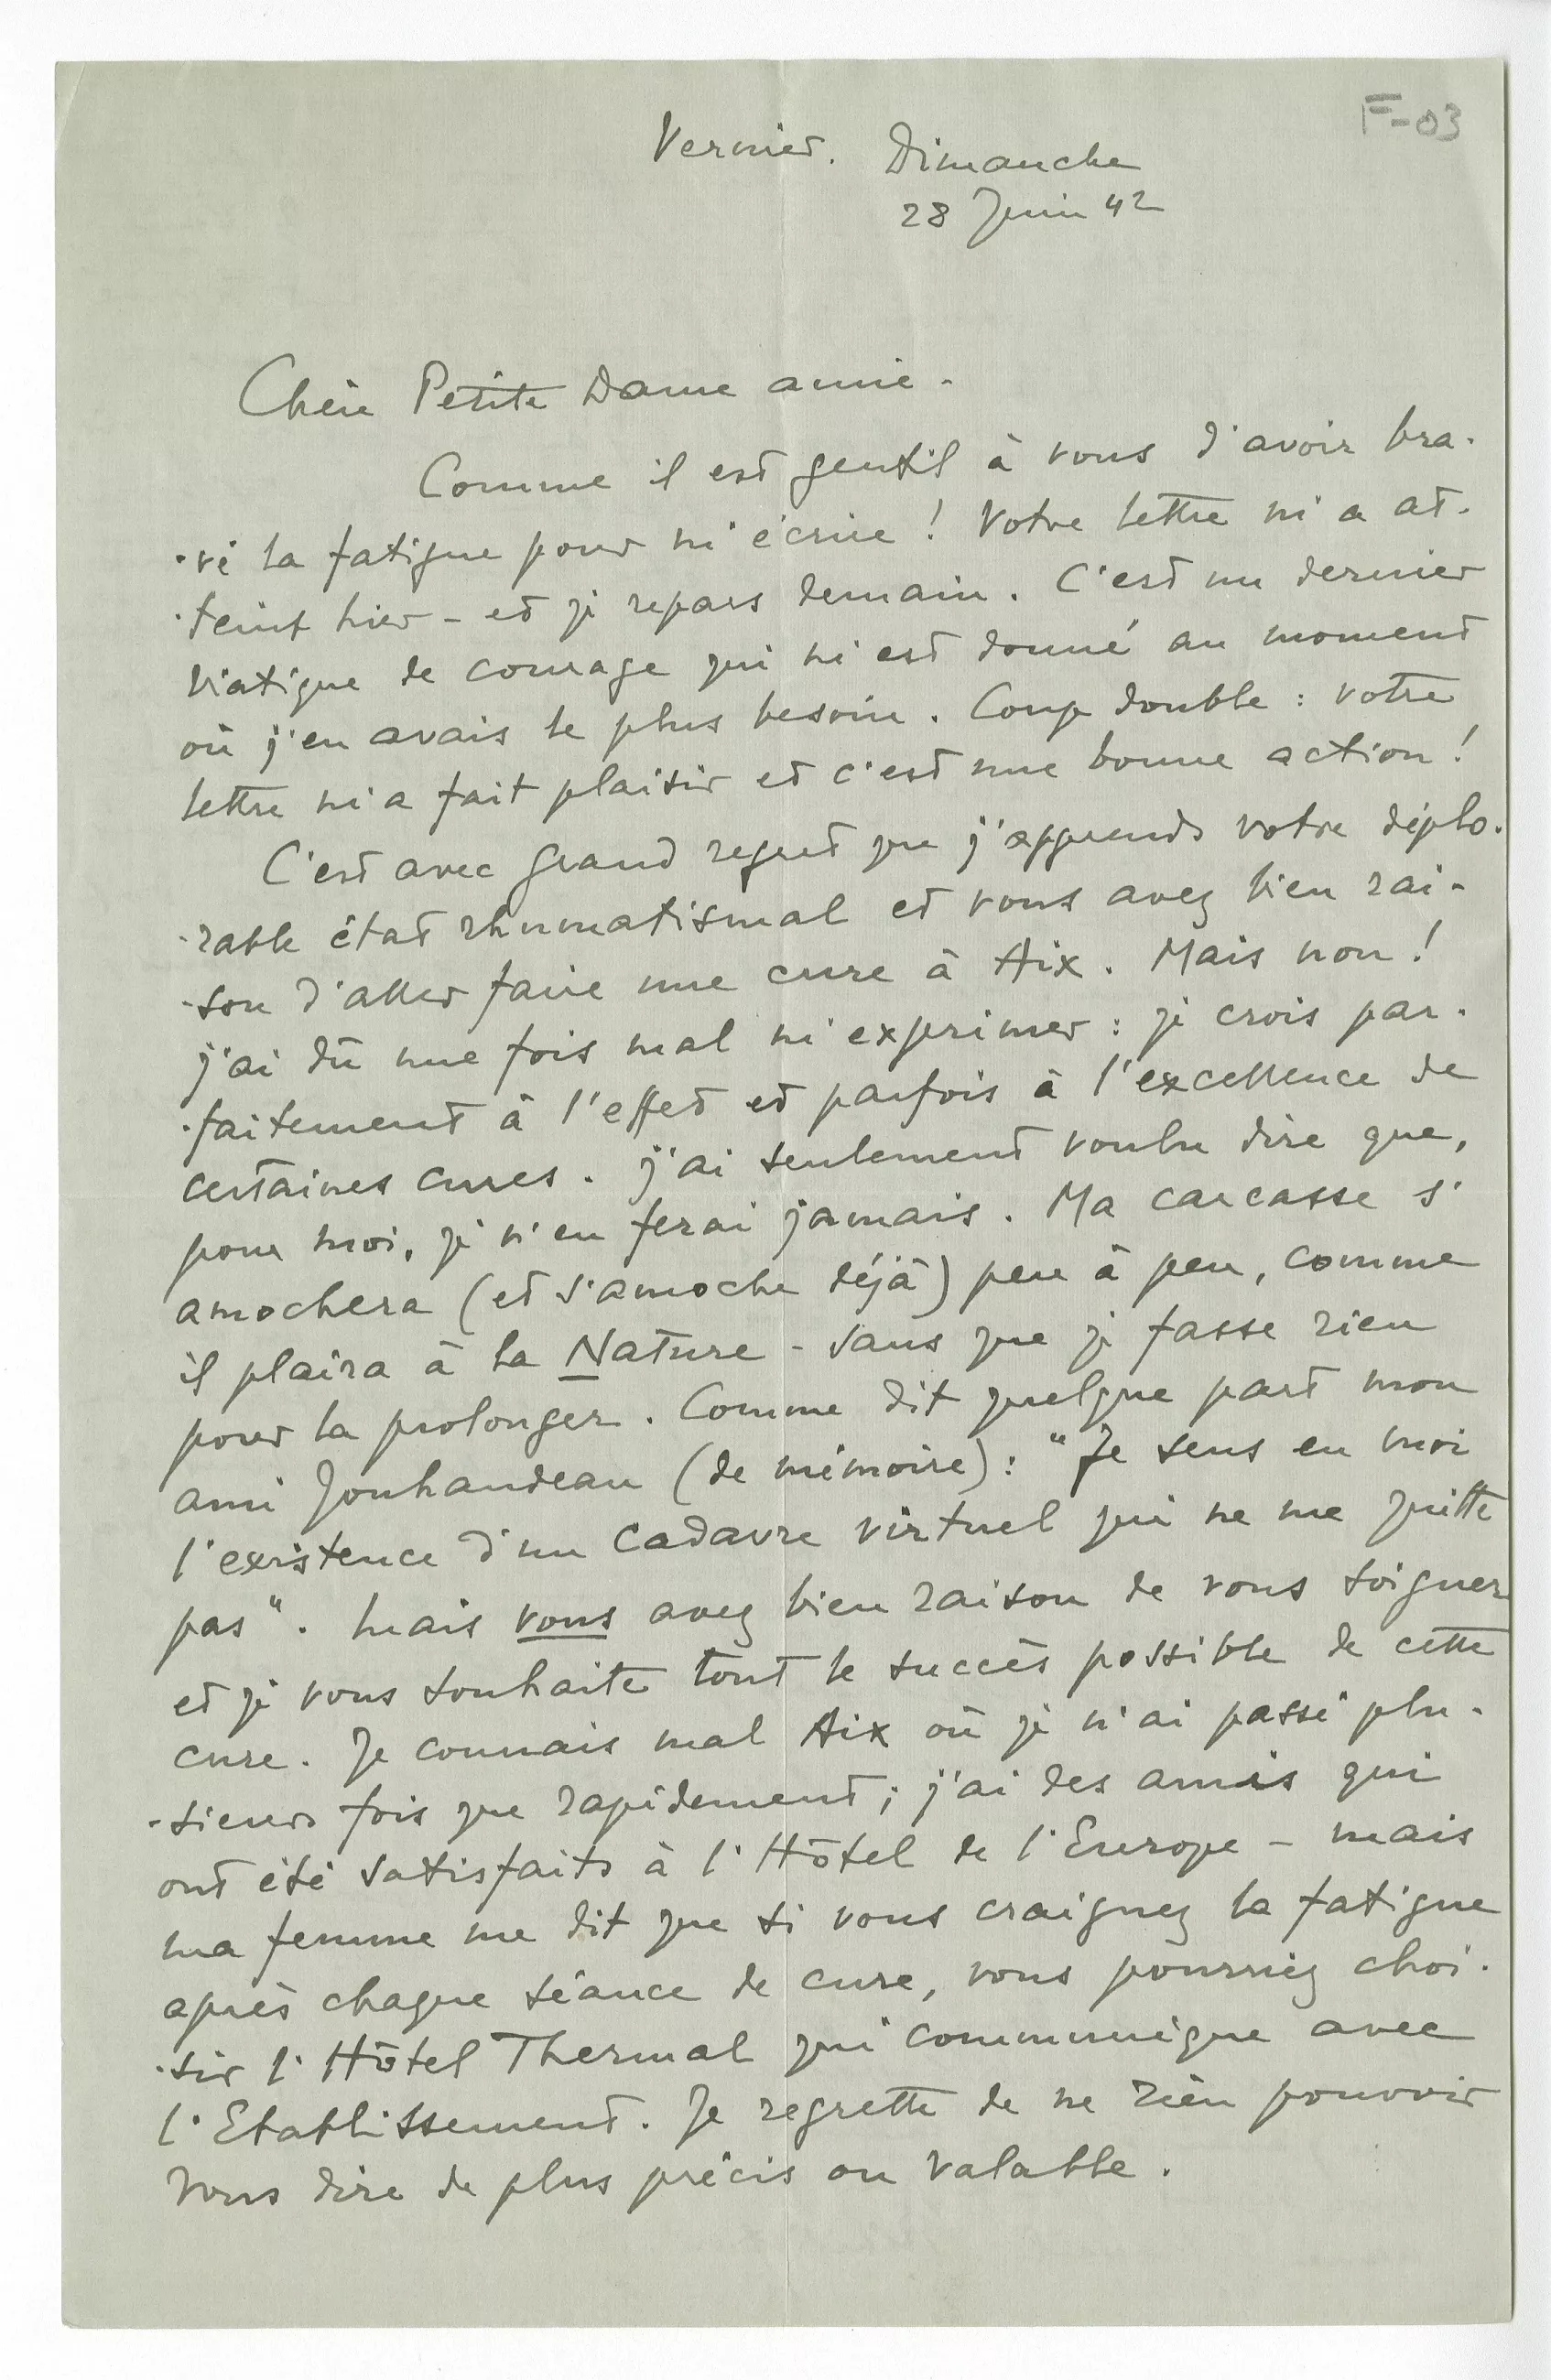 F-03
Vernier. Dimanche
28 Juin 42
Chère Petite Dame amie -
Comme il est gentil à vous d'avoir bra-
-vé la fatigue pour m'écrire ! Votre lettre m'a at-
-teint hier - et je repars demain. C'est un dernier
viatique de courage qui m'est donné au moment
où j'en avais le plus besoin. Coup double : votre
lettre m'a fait plaisir et c'est une bonne action !
C'est avec grand regret que j'apprends votre déplo-
-rable état rhumatismal et vous avez bien rai-
-son d'aller faire une cure à Aix. Mais non !
j'ai dû une fois mal m'exprimer : je crois par-
-faitement à l'effet et parfois à l'excellence de
certaines cures. j'ai seulement voulu dire que,
pour moi, je n'en ferai jamais. Ma carcasse s'
amochera (et s'amoche déjà) peu à peu, comme
il plaira à la Nature - sans que je fasse rien
pour la prolonger. Comme dit quelque part mon
ami Jouhandeau (de mémoire) : "Je sens en moi
l'existence d'un cadavre virtuel qui ne me quitte
pas". Mais vous avez bien raison de vous soigner
et je vous souhaite tout le succès possible de cette
cure. Je connais mal Aix où je n'ai passé plu-
-sieurs fois que rapidement ; j'ai des amis qui
ont été satisfaits à l'Hôtel de l'Europe - mais
ma femme me dit que si vous craignez la fatigue
après chaque séance de cure, vous pourriez choi-
-sir l'Hôtel Thermal qui communique avec
l'Etablissement. Je regrette de ne rien pouvoir
vous dire de plus précis ou valable.